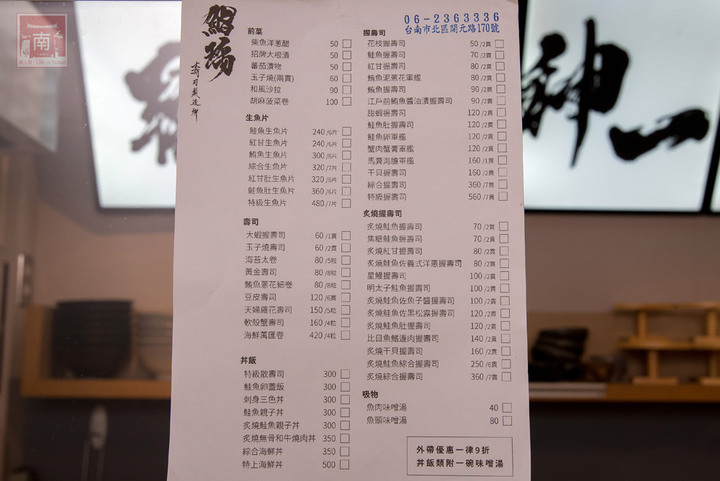 南
06-2363336
台南市北區開元路170號
前菜
柴魚洋蔥醋 50
招牌大根漬 50
蕃茄漬物 50
玉子燒(兩貫) 60
和風沙拉 90
胡麻菠菜卷 100
生魚片
鮭魚生魚片 240/6片
紅甘生魚片 240/6片
鮪魚生魚片 300/6片
綜合生魚片 320/7片
紅甘肚生魚片 320/6片
鮭魚肚生魚片 360/6片
特級生魚片 480/7片
壽司
大蝦握壽司 60/1貫
玉子燒壽司 60/2貫
海苔太卷 80/5粒
黃金壽司 80/8粒
鮪魚蔥花細卷 80/8粒
豆皮壽司 120/6貫
天婦雞花壽司 150/5粒
軟殼蟹壽司 160/4粒
海鮮萬匯卷 420/4粒
丼飯
特級散壽司 300
鮭魚卵蓋飯 300
刺身三色丼 300
鮭魚親子丼 300
炙燒鮭魚親子丼 300
炙燒無骨和牛燒肉丼 350
綜合海鮮丼 350
特上海鮮丼 500
握壽司
花枝握壽司 50/2貫
鮭魚握壽司 70/2貫
紅甘握壽司 80/2貫
鮪魚泥蔥花軍艦 80/2貫
鮪魚握壽司 90/2貫
江戶前鮪魚醬油漬握壽司 90/2貫
甜蝦握壽司 120/2貫
鮭魚肚握壽司 120/2貫
鮭魚卵軍艦 120/2貫
蟹肉蟹膏軍艦 120/2貫
馬糞海膽軍艦 160/1貫
干貝握壽司 160/2貫
綜合握壽司 360/7貫
特級握壽司 560/7貫
炙燒握壽司
炙燒鮭魚握壽司 70/2貫
焦糖鮭魚握壽司 70/2貫
炙燒紅甘握壽司 80/2貫
炙燒鮭魚佐義式洋蔥握壽司 80/2貫
星鰻握壽司 100/1貫
明太子鮭魚握壽司 100/2貫
炙燒鮭魚佐魚子醬握壽司 100/2貫
炙燒鮭魚佐黑松露握壽司 120/2貫
炙燒鮭魚肚握壽司 120/2貫
比目魚鰭邊肉握壽司 140/2貫
炙燒干貝握壽司 160/2貫
炙燒鮭魚綜合握壽司 250/6貫
炙燒綜合握壽司 360/7貫
吸物
魚肉味噌湯 40
魚頭味噌湯 80
外帶優惠一律9折
丼飯類附一碗味噌湯